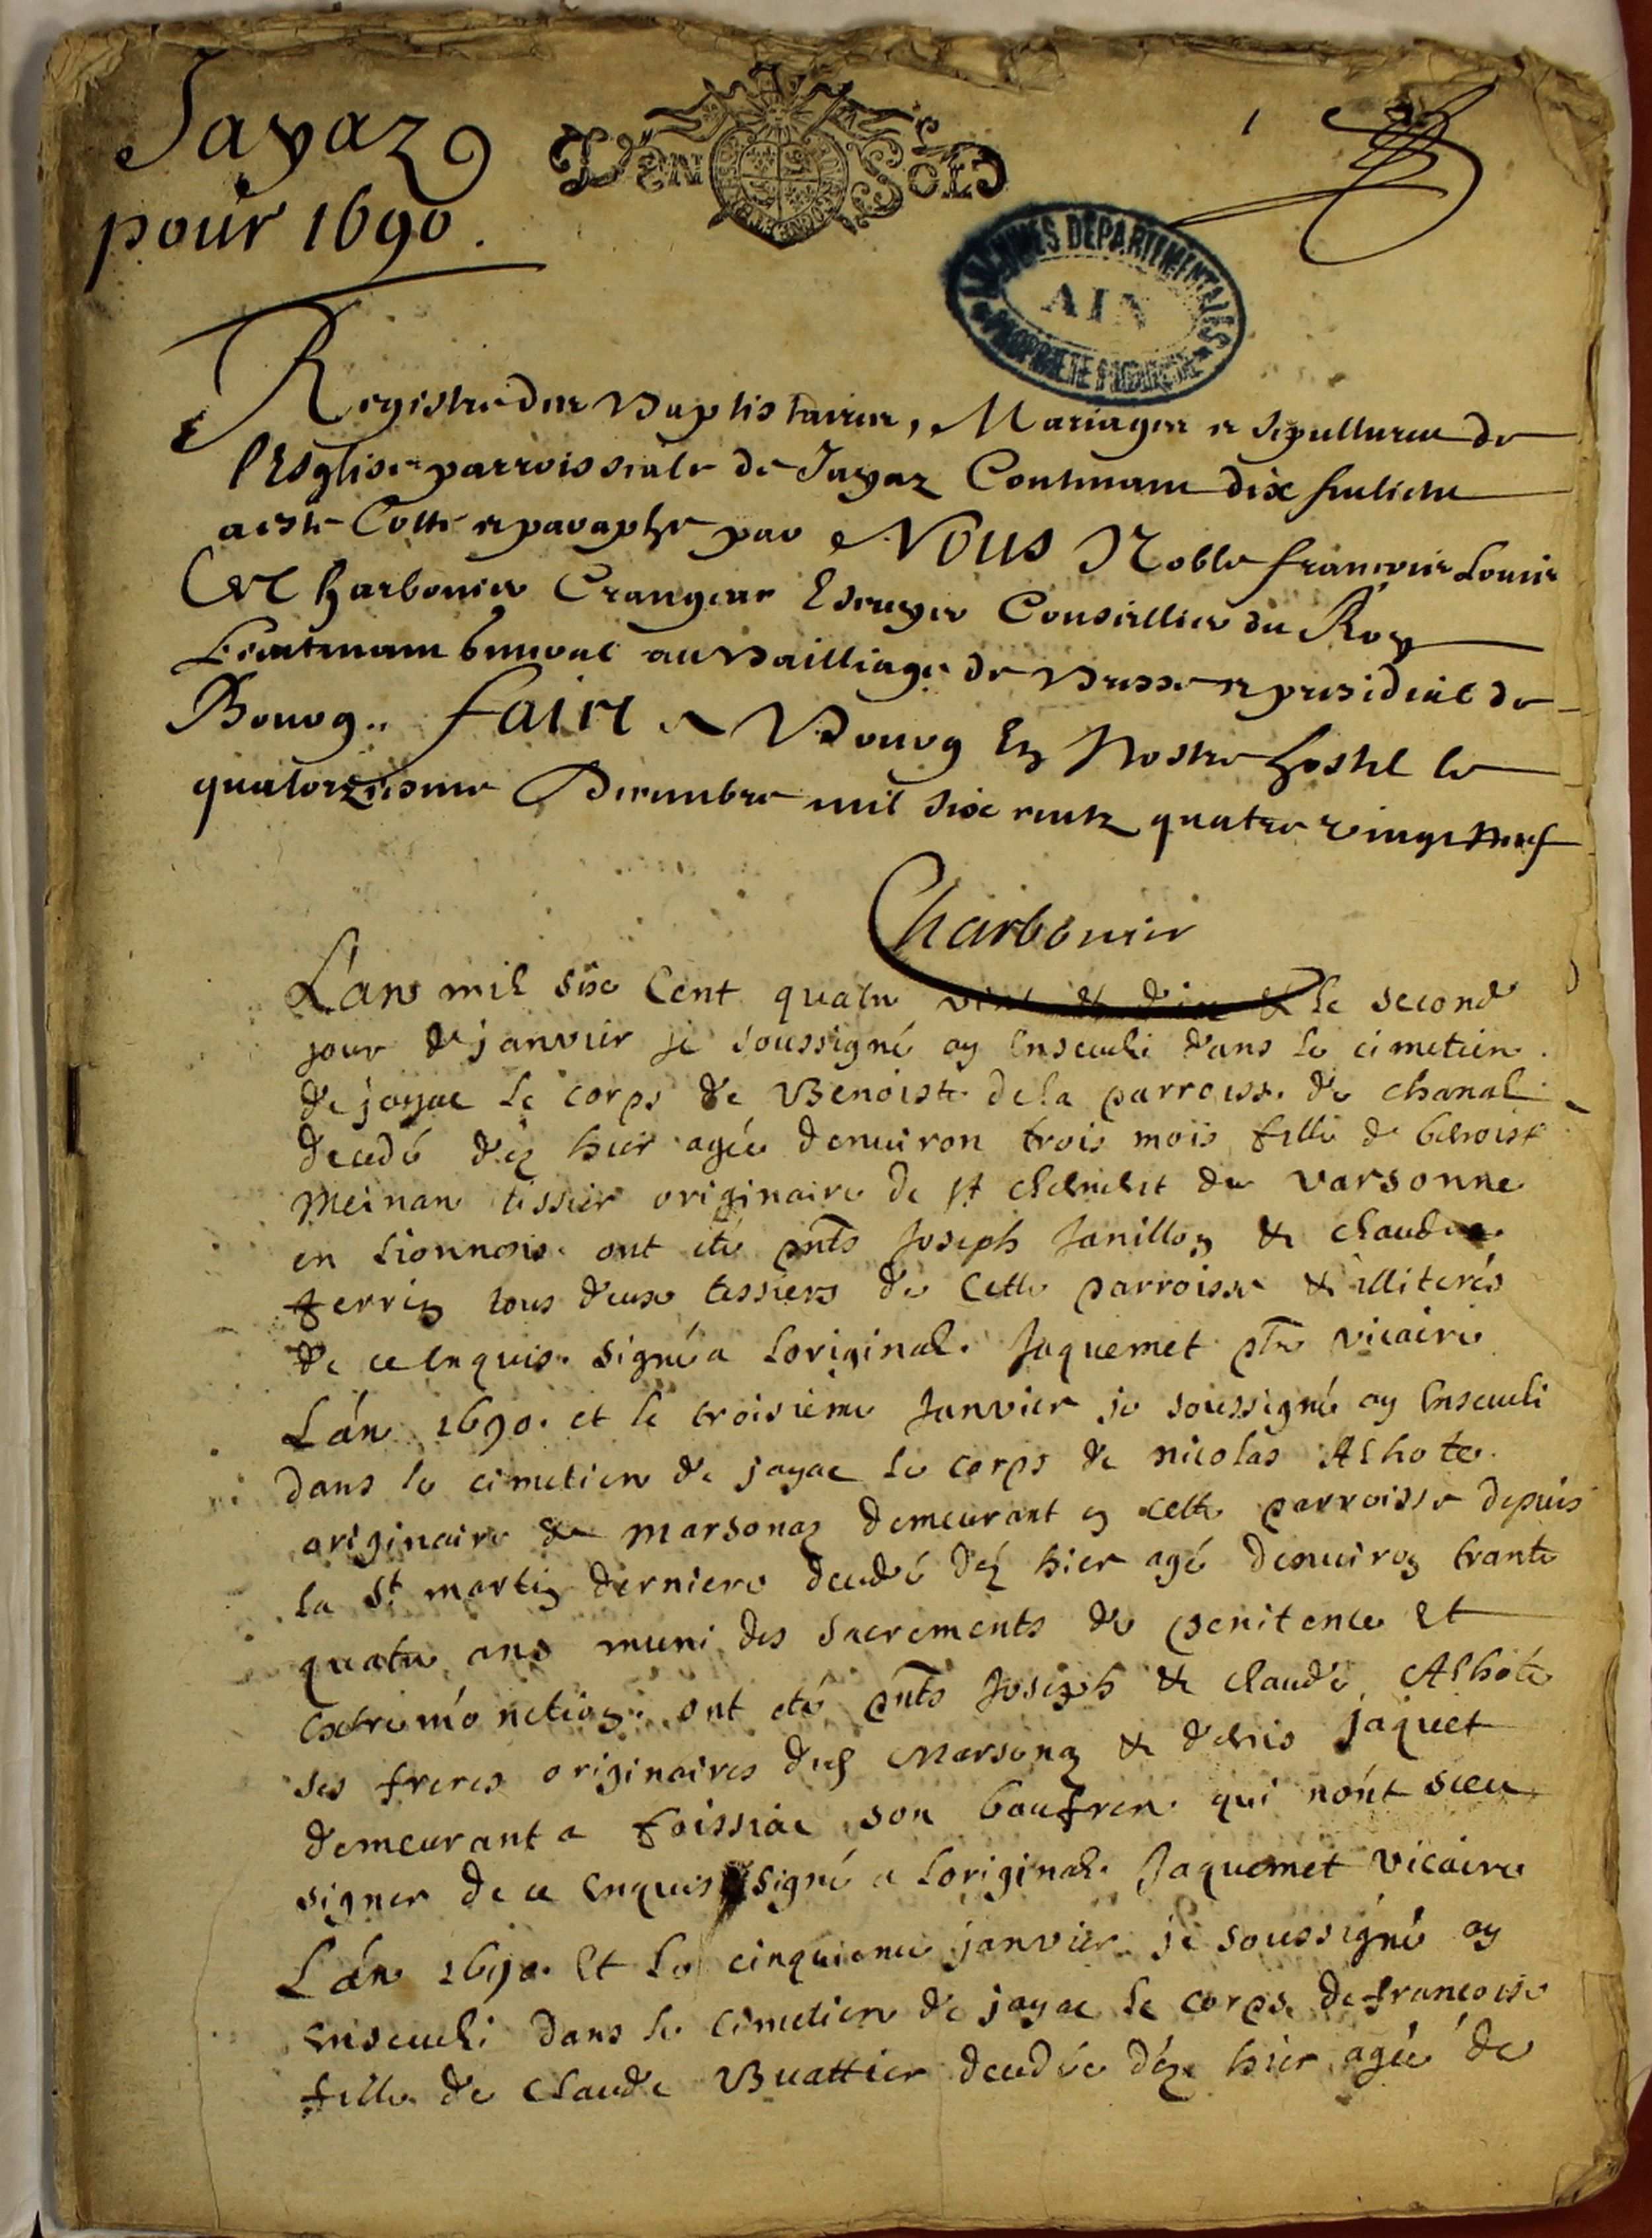 Jayaz
pour 1690.
DEN SOLS
1
ARCHIVES DEPARTEMENTALES
AIN
PROPRIETE PUBLIQUE
Registre des Baptistaires, Mariages et sepultures de
l'Esglise parroissiale de Jayaz Contenant dix feullietz
a esté Cotté et paraphé par Nous Noble françois Louis
Charbonier Crangeac Escuyer Conseillier du Roy
Lieutenant general au Bailliage de Bresse et presidial de
Bourg. faict a Bourg En Nostre hostel le
quatorziesme Decembre mil six centz quatre vingt neuf
Charbonier
L'an mil six Cent quatre vint & dix & le second
jour de janvier je soussigné ay Enseveli dans le cimetiere
de jayac le corps de Benoiste de la parroisse de chanal
decedé dez hier agée denviron trois mois fille de benoist
meinan tissier originaire de st de varsonne
en Lionnois. ont eté pnts Joseph Janillon & claude
ferrin tous deux tessiers de Cette parroisse & illiterés
de ce Enquis. signé a Loriginal. Jaquemet ptre vicaire
L'án 1690. et le troisieme Janvier je soussigné ay Enseveli
dans le cimetiere de jayac le corps de nicolas Alhote
originaire de marsonaz demeurant en cette parroisse depuis
la St martin derniere decedé déz hier agé denviron trante
quatre ans muni des sacrements de penitence Et
Extreme onction. ont eté pnts Joseph & claude Alhote
ses freres originaires dud Marsonaz & denis jaquet
demeurant a foissiac son baufrere qui nónt sceu
signer de ce Enquis signé a Loriginal. Jaquemet vicaire
L'án 1690. Et Le cinquieme janvier je soussigné ay
Enseveli dans le cimetiere de jayac le corps de francoise
fille de claude Buattier decedée déz hier agée de